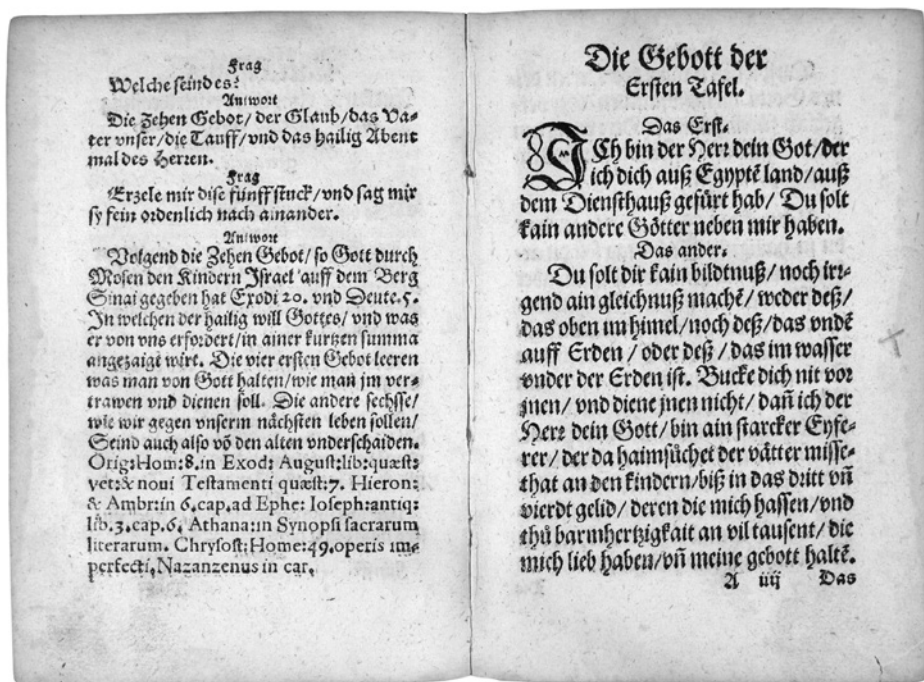 Frag
Welche seind es?
Antwort
Die Zehen Gebot/ der Glaub/das Va-
ter vnser/die Tauff/vnd das hailig Abent
mal des Herren.
Frag
Erzele mir dise fünff stuck/vnd sag mir
sy fein ordenlich nach ainander.
Antwort
Volgend die Zehen Gebot/ so Gott durch
Mosen den Kindern Israel auff dem Berg
Sinai gegeben hat Exodi 20. vnd Deute. 5.
In welchen der hailig will Gottes/ vnd was
er von vns erfordert/in ainer kurtzen summa
angezaigt wirt. Die vier ersten Gebot leeren
was man von Gott halten/wie man jm ver-
trawen vnd dienen soll. Die andere sechsse/
wie wir gegen vnserm nächsten leben sollen/
Seind auch also võ den alten vnderschaiden.
Orig:Hom:8.in Exod: August:lib:quæst:
vet:& noui Testamenti quæst:7. Hieron:
& Ambr:in 6.cap.ad Ephe: Ioseph:antiq:
lib.3.cap.6. Athana:in Synopsi sacrarum
literarum. Chrysost:Home:49.operis im-
perfecti, Nazanzenus in car.
Die Gebott der
Ersten Tafel.
Das Erst.
ICh bin der Herr dein Got/der
ich dich auß Egyptẽ land/auß
dem Diensthauß gefürt hab/ Du solt
kain andere Götter neben mir haben.
Das ander.
Du solt dir kain bildtnuß/ noch irr-
gend ain gleichnuß machẽ/ weder deß/
das oben im himel/noch deß/das vndẽ
auff Erden / oder deß / das im wasser
vnder der Erden ist. Bucke dich nit vor
jnen/ vnd diene jnen nicht/ dañ ich der
Herr dein Gott/ bin ain starcker Eyfe-
rer/ der da haimsůchet der vätter misse-
that an den kindern/ biß in das dritt vñ
vierdt gelid/ deren die mich hassen/ vnd
thů barmhertzigkait an vil tausent/ die
mich lieb haben/vñ meine gebott haltẽ.
A iiij Das